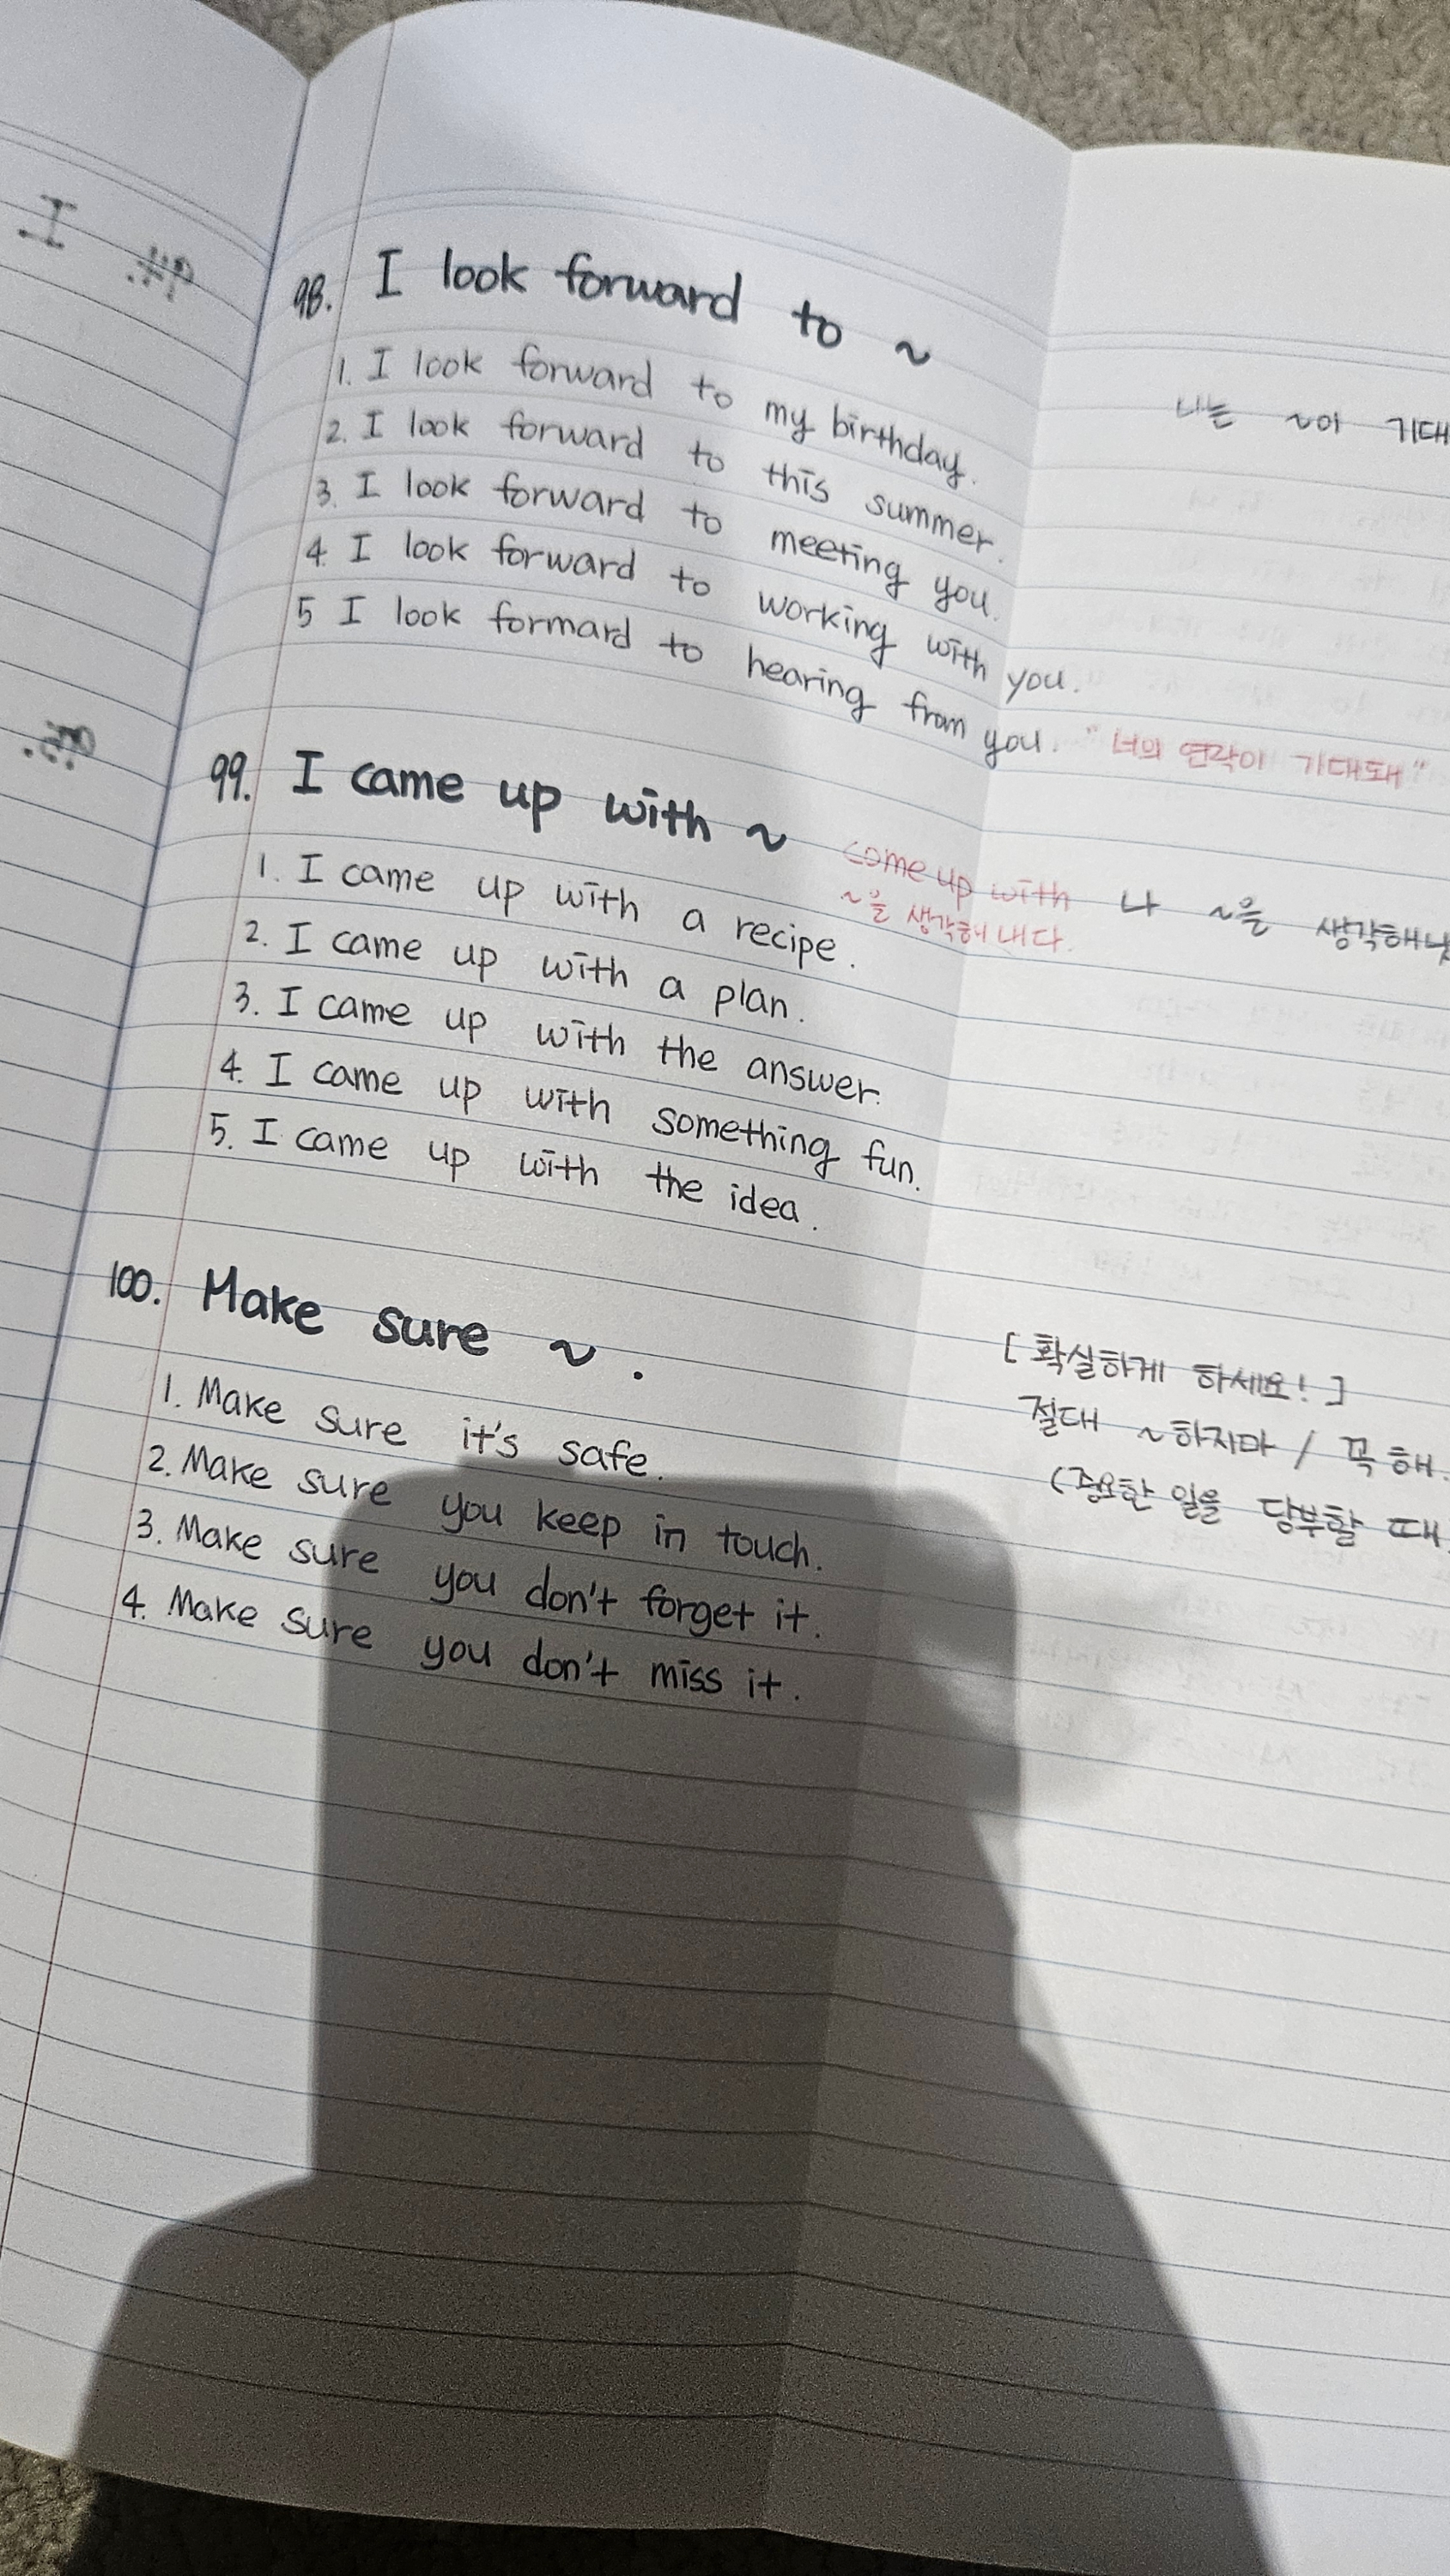 98. I look forward to ~
나는 ~이 기대
1. I look forward to my birthday.
2. I look forward to this summer.
3. I look forward to meeting you.
4 I look forward to working with you.
5 I look formard to hearing from you. "너의 연락이 기대돼"
99. I came up with ~
come up with
~을 생각해 내다.
나 ~을 생각해냈
1. I came up with a recipe.
2. I came up with a plan.
3. I came up with the answer.
4. I came up with something fun.
5. I came up with the idea.
100. Make sure ~.
[확실하게 하세요!]
절대 ~하지마 / 꼭 해.
(중요한 일을 당부할 때
1. Make sure it's safe.
2. Make sure you keep in touch.
3. Make sure you don't forget it.
4. Make sure you don't miss it.